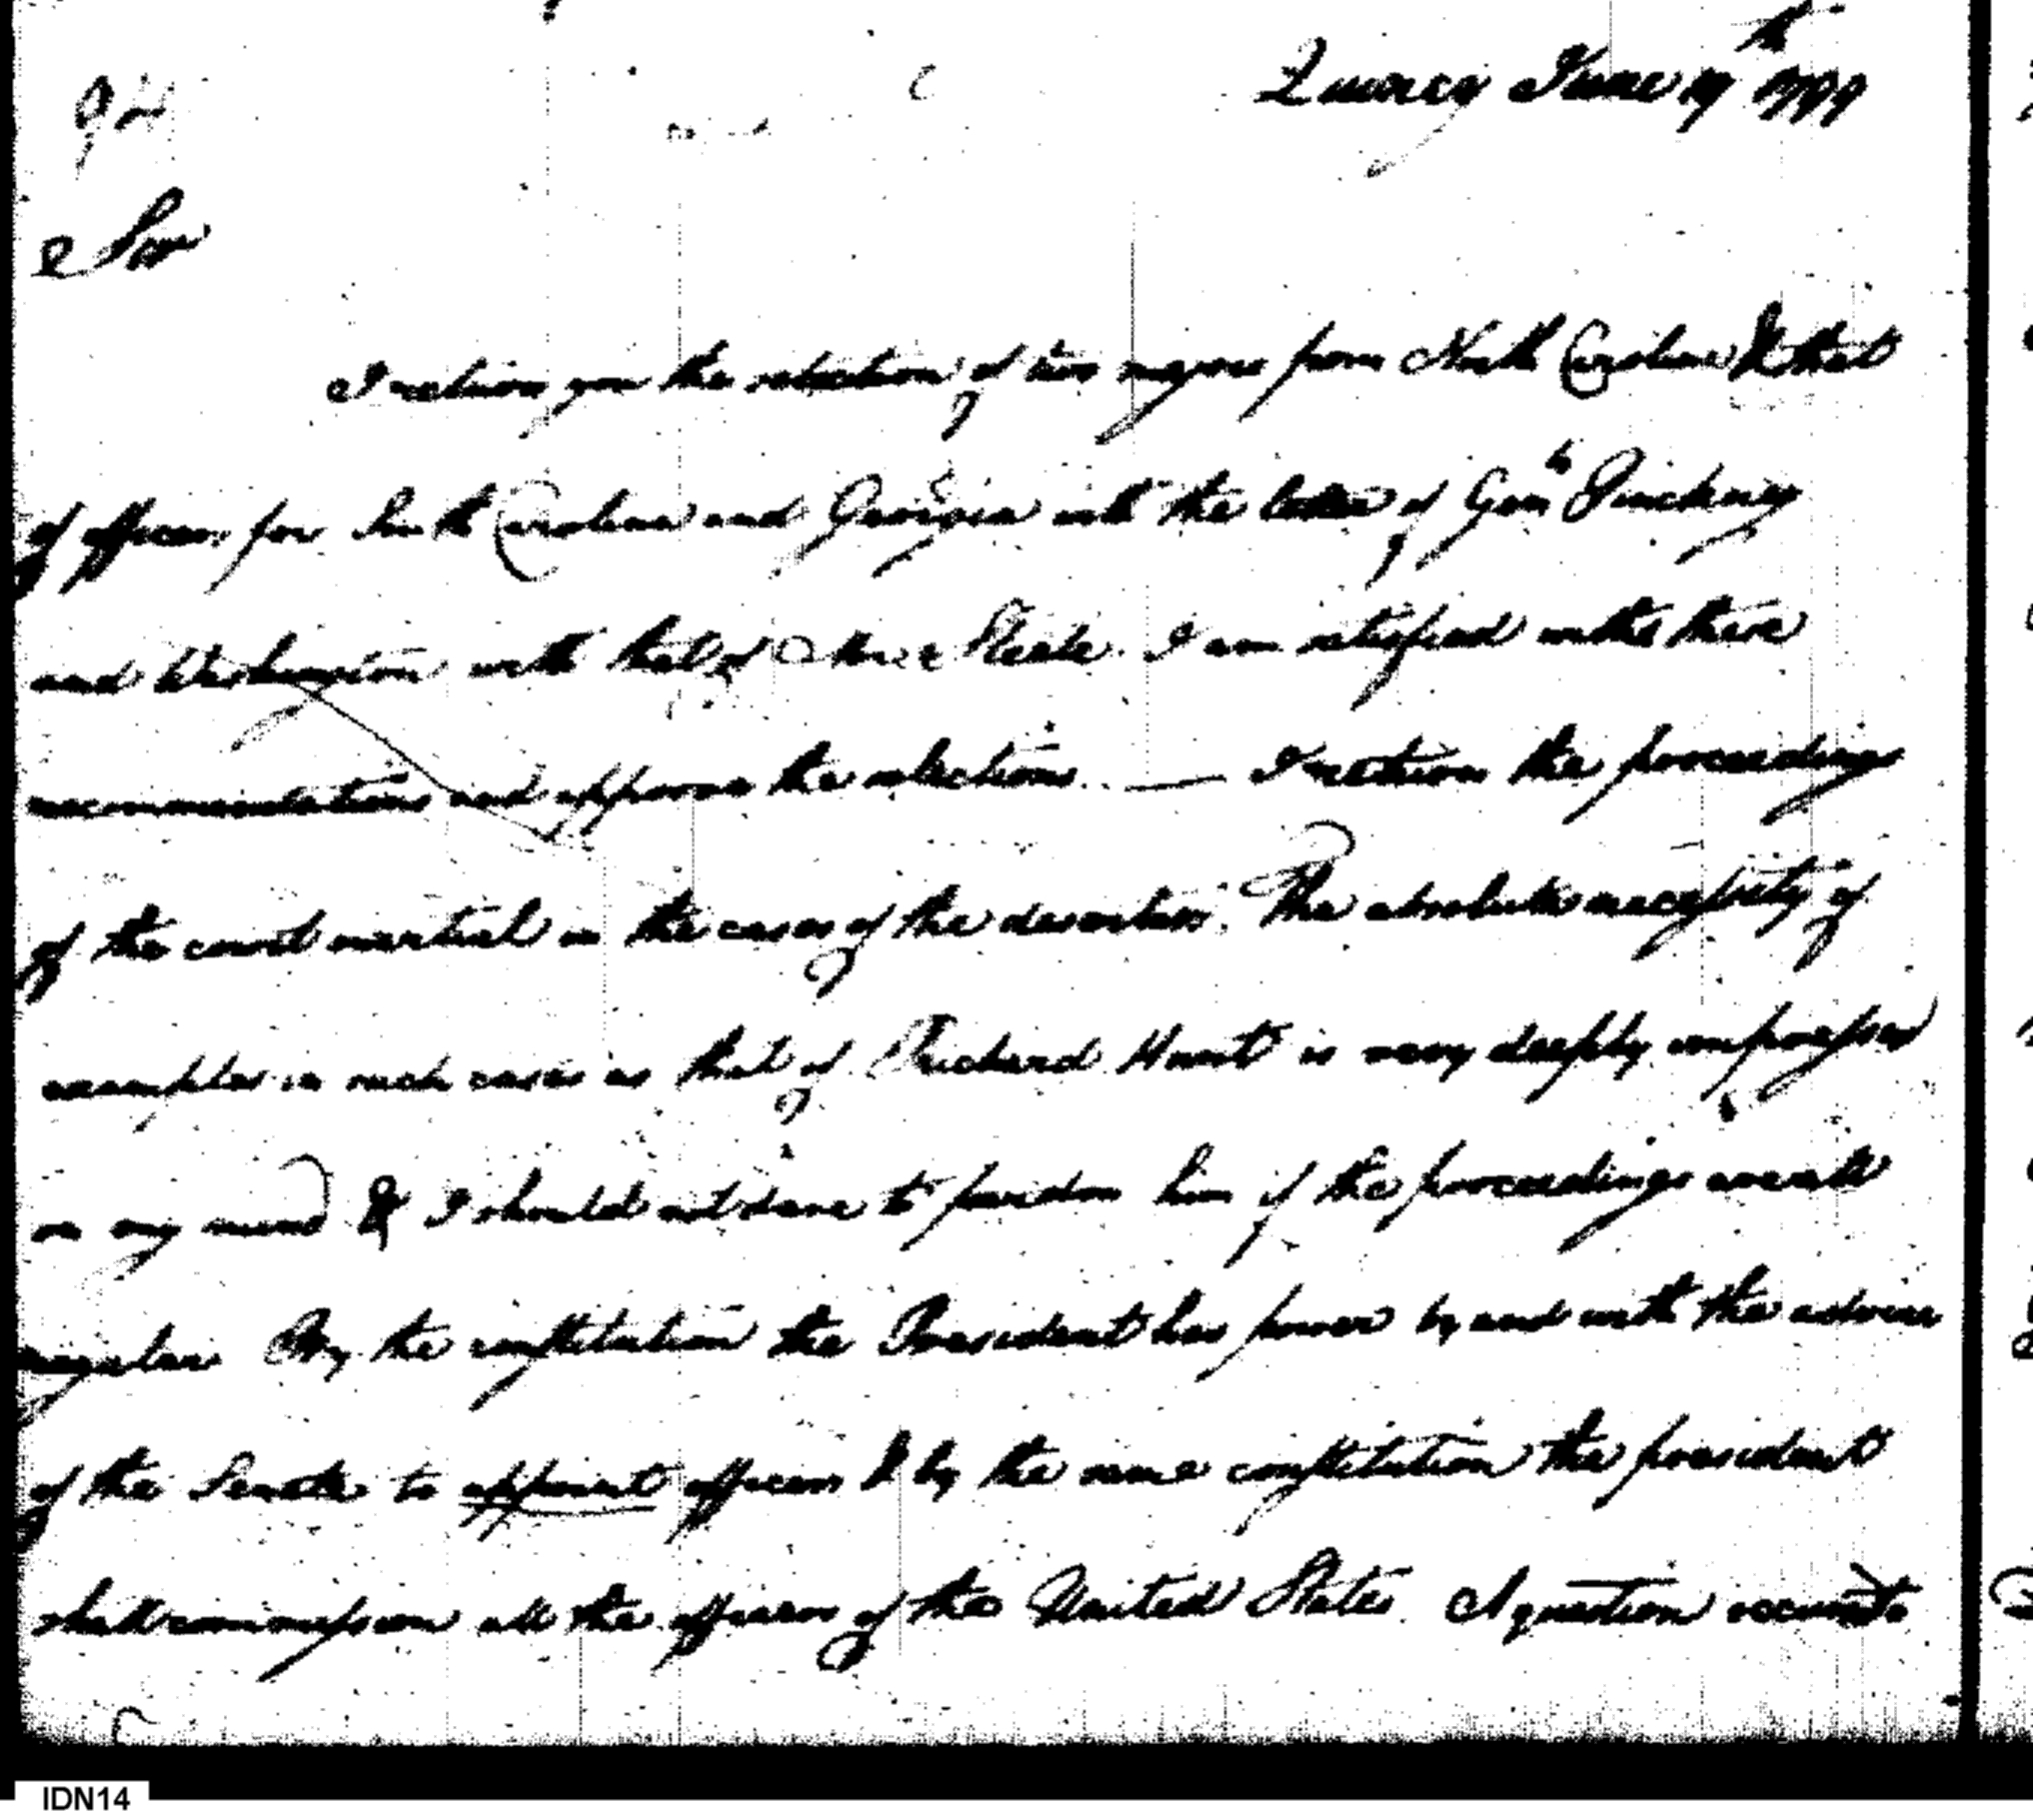 94
Quincy June 19th 1799
Sir
I return you the selection of two majors from North Carolina & that
of officers for South Carolina and Georgia with the letters of Genls Pinckney
and Washington with that of Steele. I am satisfied with their
recommendations and approve the selections. — I return the proceedings
of the court martial in the cases of the deserters. The absolute necessity of
examples in such cases as that of Richard Hunt is very deeply impressed
on my mind & I should not dare to pardon him if the proceedings were all
regular By the constitution the President has power by and with the advice
of the Senate to appoint officers & by the same constitution the president
shall commission all the officers of the United States. A question occurs to
IDN14